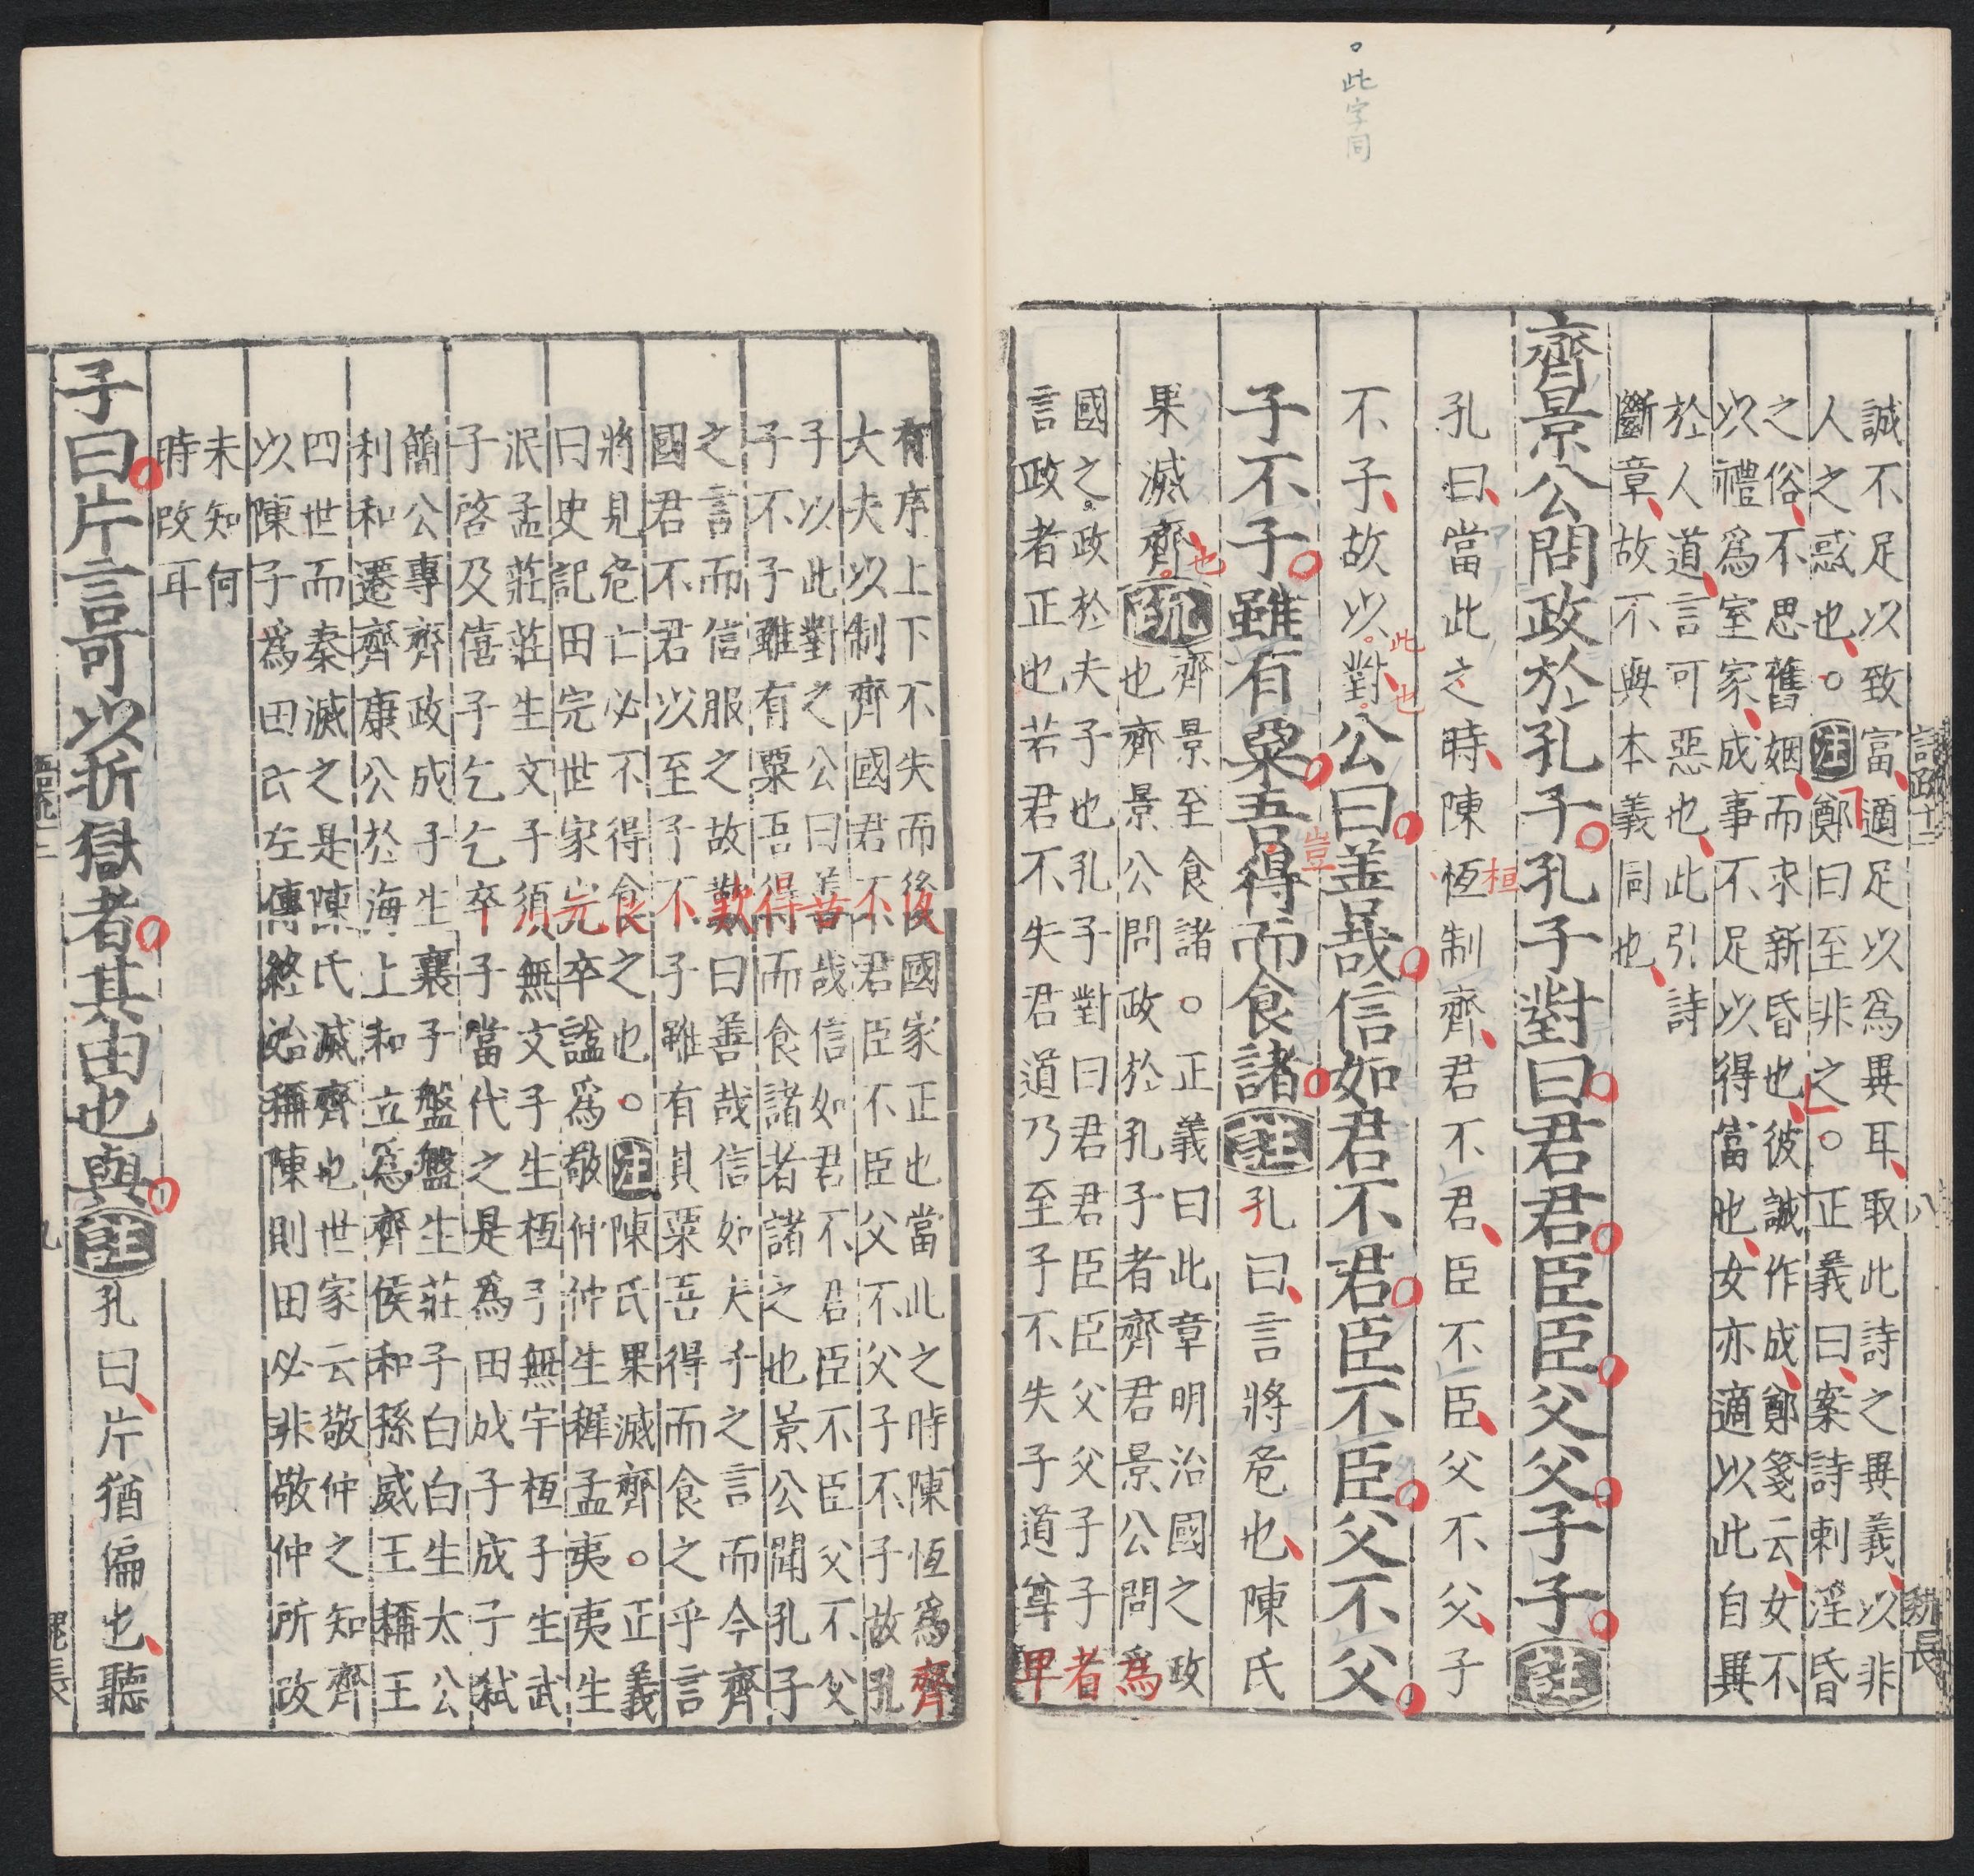 。此字同
誠不足以致富適足以爲異耳取此詩之異義以非
人之惑也○注鄭曰至非之○正義曰案詩刺淫昏
之俗不思舊姻而求新昏也彼誠作成鄭箋云女不
以禮爲室家成事不足以得富也女亦適以此自異
於人道言可惡也此引詩
斷章故不與本義同也
齊景公問政於孔子孔子對曰君君臣臣父父子子注
孔曰當此之時陳恆制齊君不君臣不臣父不父子
桓
不子故以對公曰善哉信如君不君臣不臣父不父
此也
子不子雖有粟吾得而食諸注孔曰言將危也陳氏
豈
果滅齊疏
也
齊景至食諸○正義曰此章明治國之政
也齊景公問政於孔子者齊君景公問爲
國之政於夫子也孔子對曰君君臣臣父父子子者
言政者正也若君不失君道乃至子不失子道尊卑
八
有序上下不失而後國家正也當此之時陳恆爲齊
大夫以制齊國君不君臣不臣父不父子不子故孔
子以此對之公曰善哉信如君不君臣不臣父不父
子不子雖有粟吾得而食諸者諸之也景公聞孔子
之言而信服之故歎曰善哉信如夫子之言而今齊
國君不君以至子不子雖有其粟吾得而食之乎言
將見危亡必不得食之也○注陳氏果滅齊○正義
曰史記田完世家完卒諡爲敬仲仲生穉孟夷夷生
湣孟莊莊生文子須無文子生桓子無宇桓子生武
子啓及僖子乞乞卒子當代之是爲田成子成子弒
簡公專齊政成子生襄子盤盤生莊子白白生太公
利和遷齊康公於海上和立爲齊侯和孫威王稱王
四世而秦滅之是陳氏滅齊也世家云敬仲之知齊
以陳子爲田氏左傳終始稱陳則田必非敬仲所改
未知何
時改耳
子曰片言可以折獄者其由也與注孔曰片猶偏也聽